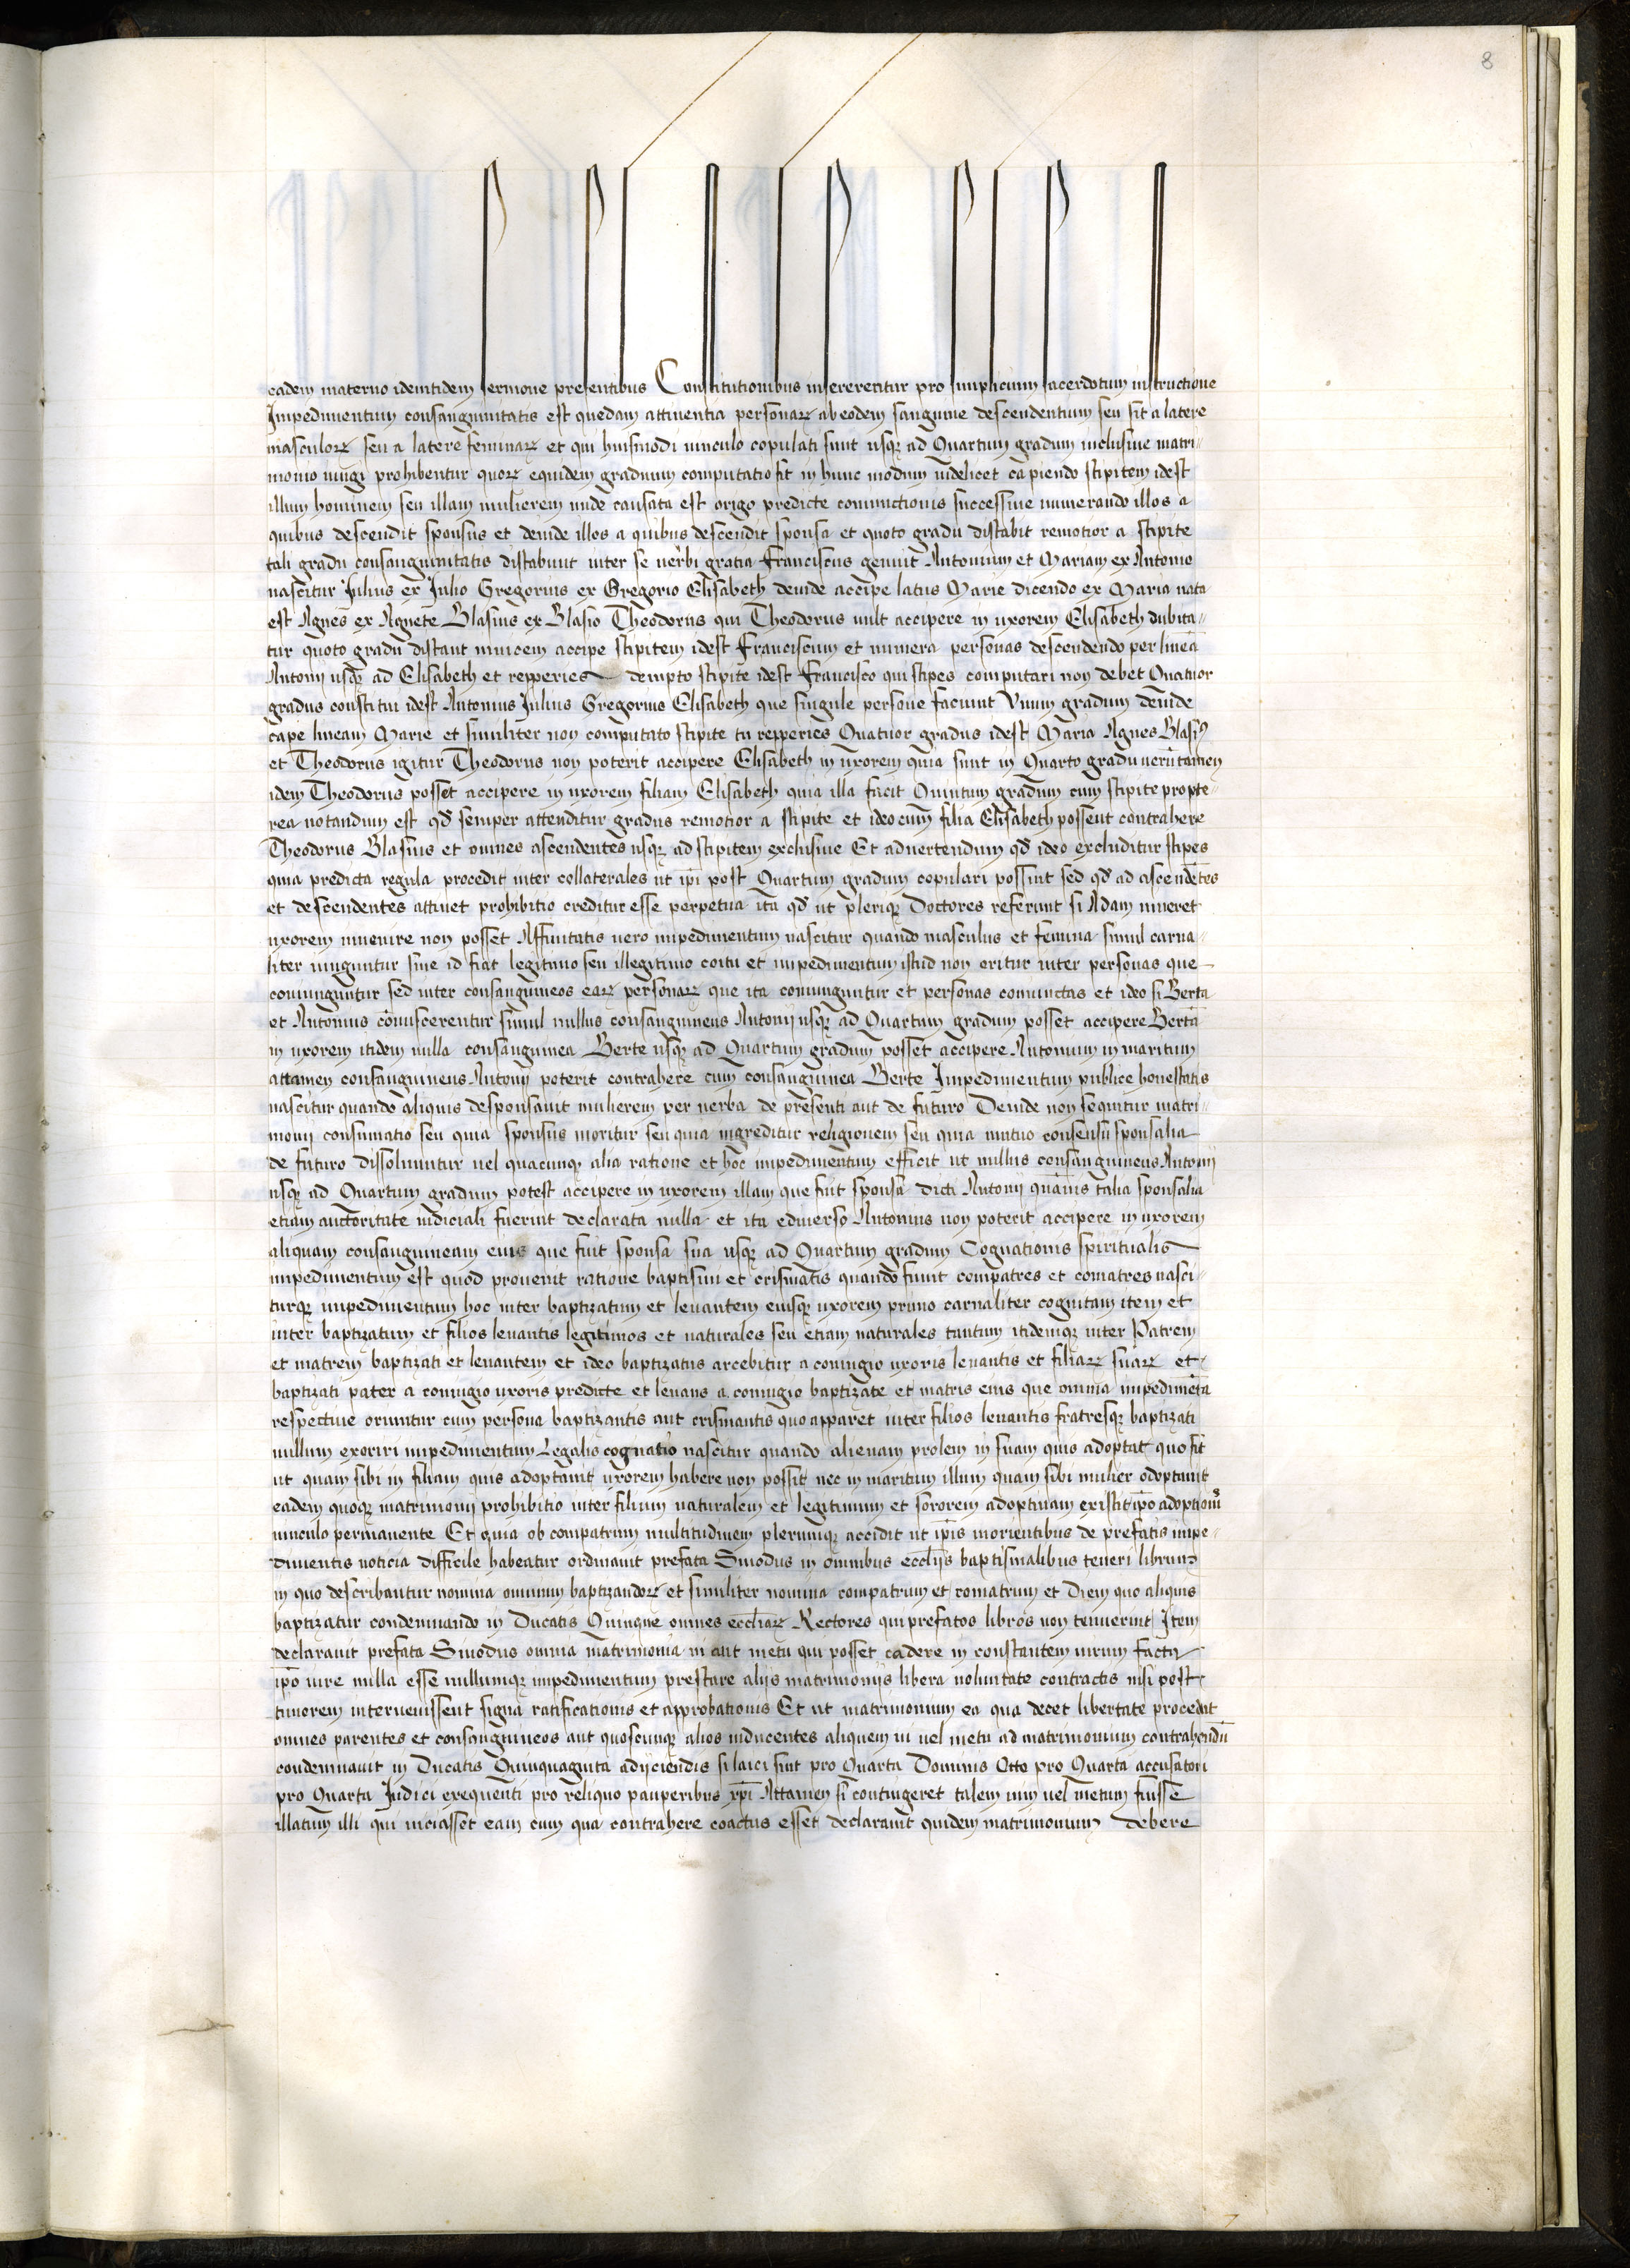 8
eadem materno idemtidem sermone presentibus Constitutionibus insererentur pro simplicium sacerdotum instructione
Impedimentum consanguinitatis est quedam attinentia personarꝝ ab eodem sanguine descendentium seu sit a latere
masculorꝝ seu a latere feminarꝝ et qui huiusmodi uinculo copulati sunt usqꝫ ad Quartum gradum inclusiue matri-
monio iungi prohibentur quorꝝ equidem graduum computatio fit in hunc modum uidelicet capiendo stipitem idest
illum hominem seu illam mulierem unde causata est origo predicte coniunctionis successiue numerando illos a
quibus descendit sponsus et deinde illos a quibus descendit sponsa et quoto gradu distabit remotior a stipite
tali gradu consanguinitatis distabunt inter se uerbi gratia Franciscus genuit Antonium et Mariam ex Antonio
nascitur Iulius ex Iulio Gregorius ex Gregorio Elisabeth deinde accipe latus Marie dicendo ex Maria nata
est Agnes ex Agnete Blasius ex Blasio Theodorus qui Theodorus uult accipere in uxorem Elisabeth dubita-
tur quoto gradu distant inuicem accipe stipitem idest Franciscum et numera personas descendendo per lineā
Antonij usqꝫ ad Elisabeth et repperies dempto stipite idest Francisco qui stipes computari non debet Quatuor
gradus constitui idest Antonius Iulius Gregorius Elisabeth que singule persone faciunt Vnum gradum deinde
cape lineam Marie et similiter non computato stipite tu repperies Quatuor gradus idest Maria Agnes Blasiꝰ
et Theodorus igitur Theodorus non poterit accipere Elisabeth in uxorem quia sunt in Quarto gradu uerūtamen
idem Theodorus posset accipere in uxorem filiam Elisabeth quia illa facit Quintum gradum cum stipite propte-
rea notandum est qđ semper attenditur gradus remotior a stipite et ideo cum filia Elisabeth possent contrahere
Theodorus Blasius et omnes ascendentes usqꝫ ad stipitem exclusiue Et aduertendum qđ ideo excluditur stipes
quia predicta regula procedit inter collaterales ut ip̄i post Quartum gradum copulari possint sed qđ ad ascendētes
et descendentes attinet prohibitio creditur esse perpetua ita qđ ut pleriqꝫ Doctores referunt si Adam uiueret
uxorem inuenire non posset Affinitatis uero impedimentum nascitur quando masculus et femina simul carna-
liter iunguntur siue id fiat legitimo seu illegitimo coitu et impedimentum istud non oritur inter personas que
coniunguntur sed inter consanguineos earꝝ personarꝝ que ita coniunguntur et personas coniunctas et ideo si Berta
et Antonius cōmiscerentur simul nullus consanguineus Antonij usqꝫ ad Quartum gradum posset accipere Bertā
in uxorem itidem nulla consanguinea Berte usqꝫ ad Quartum gradum posset accipere Antonium in maritum
attamen consanguineus Antonij poterit contrahere cum consanguinea Berte Impedimentum publice honestatis
nascitur quando aliquis desponsauit mulierem per uerba de presenti aut de futuro Deinde non sequitur matri-
monij consumatio seu quia sponsus moritur seu quia ingreditur religionem seu quia mutuo consensu sponsalia
de futuro dissoluuntur uel quacunqꝫ alia ratione et hoc impedimentum efficit ut nullus consanguineus Antonij
usqꝫ ad Quartum gradum potest accipere in uxorem illam que fuit sponsa dicti Antonij quāuis talia sponsalia
etiam auctoritate iudiciali fuerint declarata nulla et ita ediuerso Antonius non poterit accipere in uxorem
aliquam consanguineam eius que fuit sponsa sua usqꝫ ad Quartum gradum Cognationis spiritualis
impedimentum est quod prouenit ratione baptismi et crismatis quando fiunt compatres et comatres nasci-
turqꝫ impedimentum hoc inter baptizatum et leuantem eiusqꝫ uxorem primo carnaliter cognitam item et
inter baptizatum et filios leuantis legitimos et naturales seu etiam naturales tantum itidemqꝫ inter Patrem
et matrem baptizati et leuantem et ideo baptizatus arcebitur a coniugio uxoris leuantis et filiarꝝ suarꝝ et
baptizati pater a coniugio uxoris predicte et leuans a coniugio baptizate et matris eius que omnia impedimēta
respectiue oriuntur cum persona baptizantis aut crismantis quo apparet inter filios leuantis fratresqꝫ baptizati
nullum exoriri impedimentum Legalis cognatio nascitur quando alienam prolem in suam quis adoptat quo fit
ut quam sibi in filiam quis adoptauit uxorem habere non possit nec in maritum illum quam sibi mulier odoptauit
eadem quoqꝫ matrimonij prohibitio inter filium naturalem et legitimum et sororem adoptiuam existit ip̄o adoptionis
uinculo permanente Et quia ob compatrum multitudinem plerumqꝫ accidit ut ip̄is morientibus de prefatis impe-
dimentis noticia difficile habeatur ordinauit prefata Sinodus in omnibus eccl̄ijs baptismalibus teneri librum
in quo describantur nomina omnium baptizandorꝝ et similiter nomina compatrum et comatrum et Diem quo aliquis
baptizatur condemnando in Ducatis Quinque omnes eccl̄iarꝝ Rectores qui prefatos libros non tenuerint Item
declarauit prefata Sinodus omnia matrimonia ui aut metu qui posset cadere in constantem uirum facta
ip̄o iure nulla esse nullumqꝫ impedimentum prestare alijs matrimonijs libera uoluntate contractis nisi post
timorem interuenissent signa ratificationis et approbationis Et ut matrimonium ea qua decet libertate procedat
omnes parentes et consanguineos aut quoscunqꝫ alios inducentes aliquem ui uel metu ad matrimonium contrahendū
condemnauit in Ducatis Quinquaginta adijciendis si laici sint pro Quarta Dominis Otto pro Quarta accusatori
pro Quarta Iudici exequenti pro reliquo pauperibus xp̄i Attamen si contingeret talem uim uel metum fuisse
illatum illi qui uiciasset eam cum qua contrahere coactus esset declarauit quidem matrimonium debere